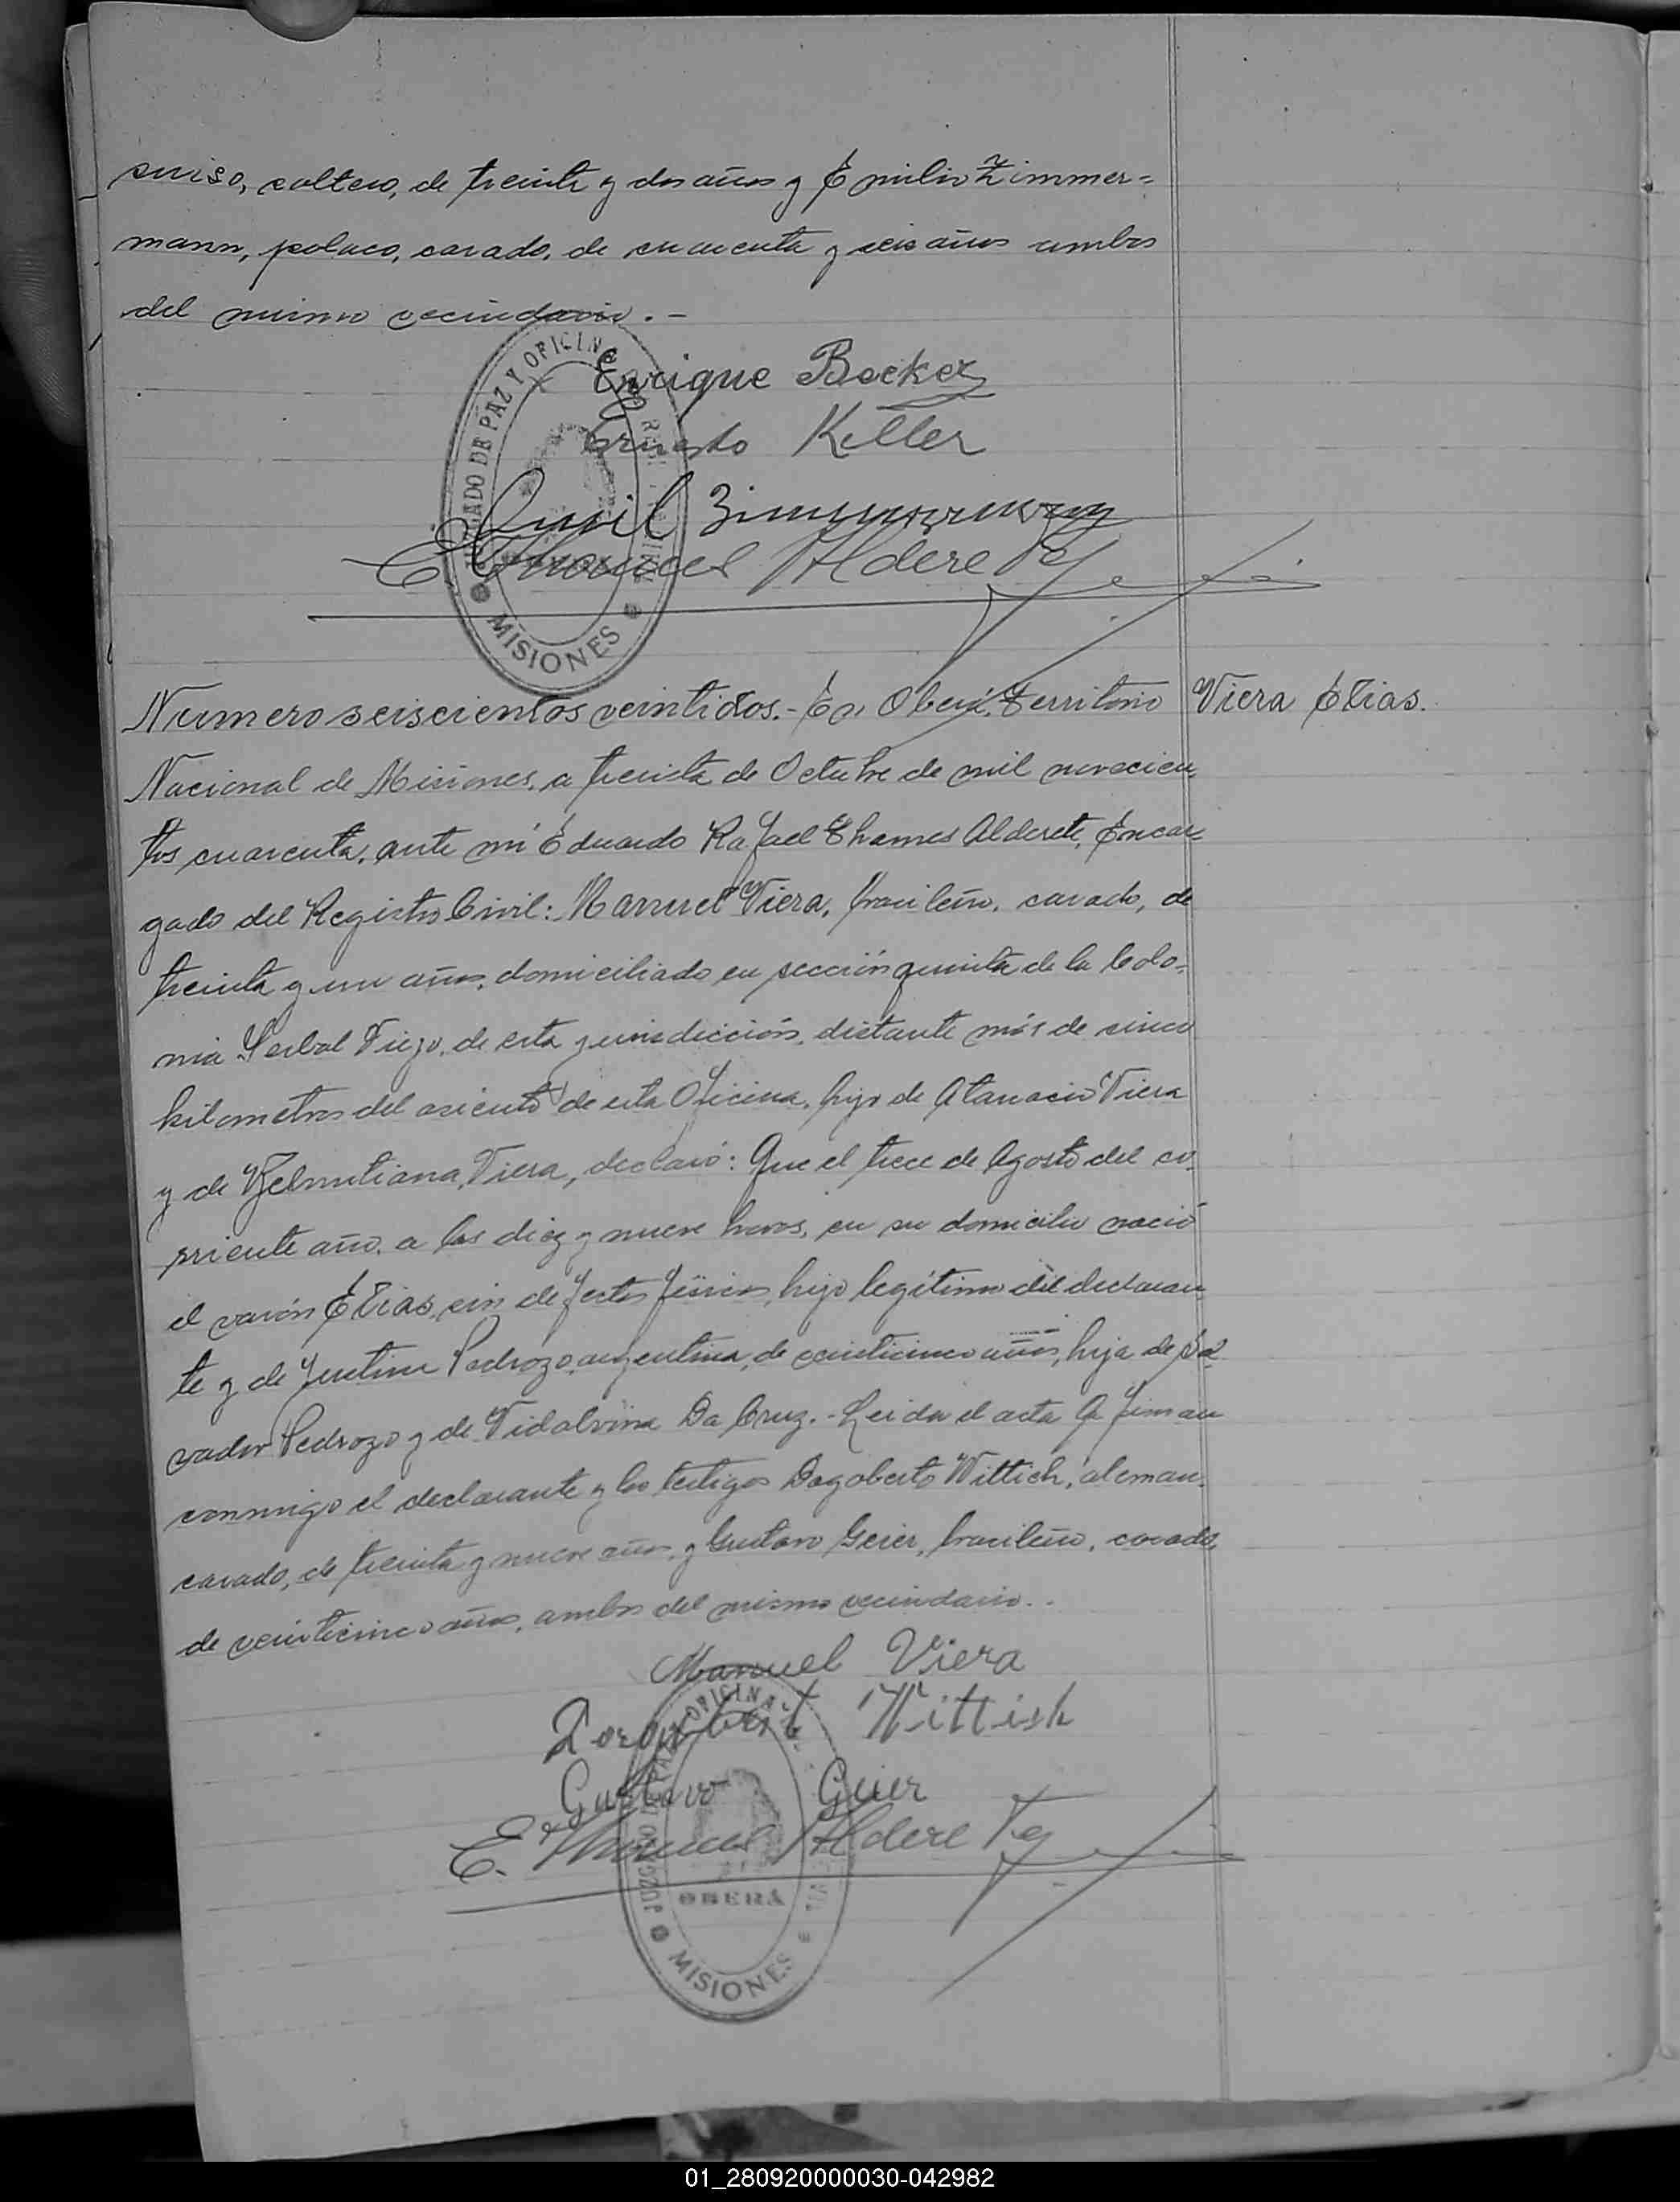 suiso, soltero, de treinta y dos años y Emilio Zimmer=
mann, polaco, casado, de cuarenta y seis años ambos
del mismo vecindario.-
Enrique Becker
Ernesto Keller
Emil Zimmermann
E. Thames Alderete
JUZGADO DE PAZ Y OFICINA
MISIONES
Numero seiscientos veintidos.- En Oberá, Territorio
Viera Elias.
Nacional de Misiones, a treinta de Octubre de mil novecien-
tos cuarenta, ante mí Eduardo Rafael Thames Alderete, Encar-
gado del Registro Civil: Manuel Viera, brasileño, casado, de
treinta y un años, domiciliado en sección quinta de la Colo-
nia Yerbal Viejo, de esta jurisdicción, distante más de cinco
kilometros del asiento de esta Oficina, hijo de Atanacio Viera
y de Viera, declaró: Que el trece de Agosto del co-
rriente año, a las diez y nueve horas, en su domicilio nació
el varón Elias, sin defectos físicos, hijo legítimo del declaran-
te y de Justina Pedrozo, argentina, de veinticinco años, hija de Sal-
vador Pedrozo y de Vidalvina Da Cruz.- Leida el acta la firman
conmigo el declarante y los testigos Dagoberto Wittich, aleman,
casado, de treinta y nueve años, y Gustavo Geier, brasileño, casado,
de veinticinco años, ambos del mismo vecindario..
Manuel Viera
Wittish
Gustavo Geier
E. Thames Alderete
JUZGADO DE PAZ Y OFICINA
OBERÁ
MISIONES
01_280920000030-042982